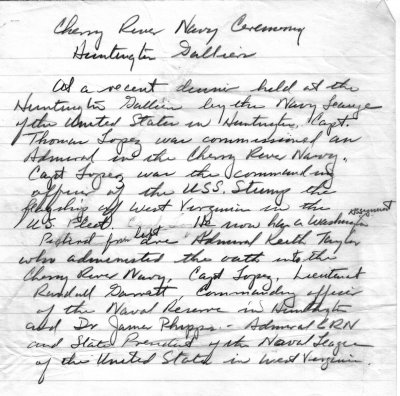 Cherry River Navy Ceremony
Huntington Gallier
At a recent dinner held at the
Huntington Gallier by the Navy League
of the United States in Huntington, Capt.
Thomas Lopez was commissioned an
Admiral in the Cherry River Navy.
Capt Lopez was the commanding
officer of the U.S.S. Stump the
flagship of West Virginia in the
U.S. Fleet. He now has a Washington assignment
Pictured from left are Admiral Keith Taylor
who administered the oath into the
Cherry River Navy, Capt Lopez, Lieutenant
Randall Garratt Commanding officer
of the Naval Reserve in Huntington
and Dr James Phipps - Admiral CRN
and State President of the Naval League
of the United States in West Virginia.